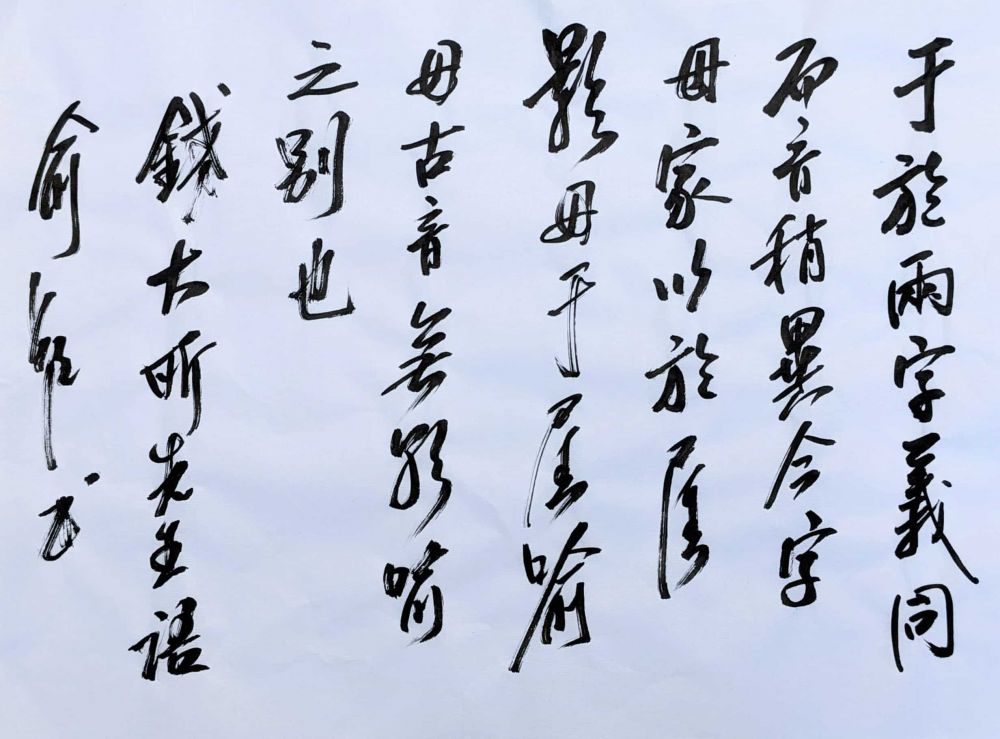 于於兩字義同
而音稍異今字
母家以於屬
影母于屬喻
母古音無影喻
之別也
錢大昕先生語
俞